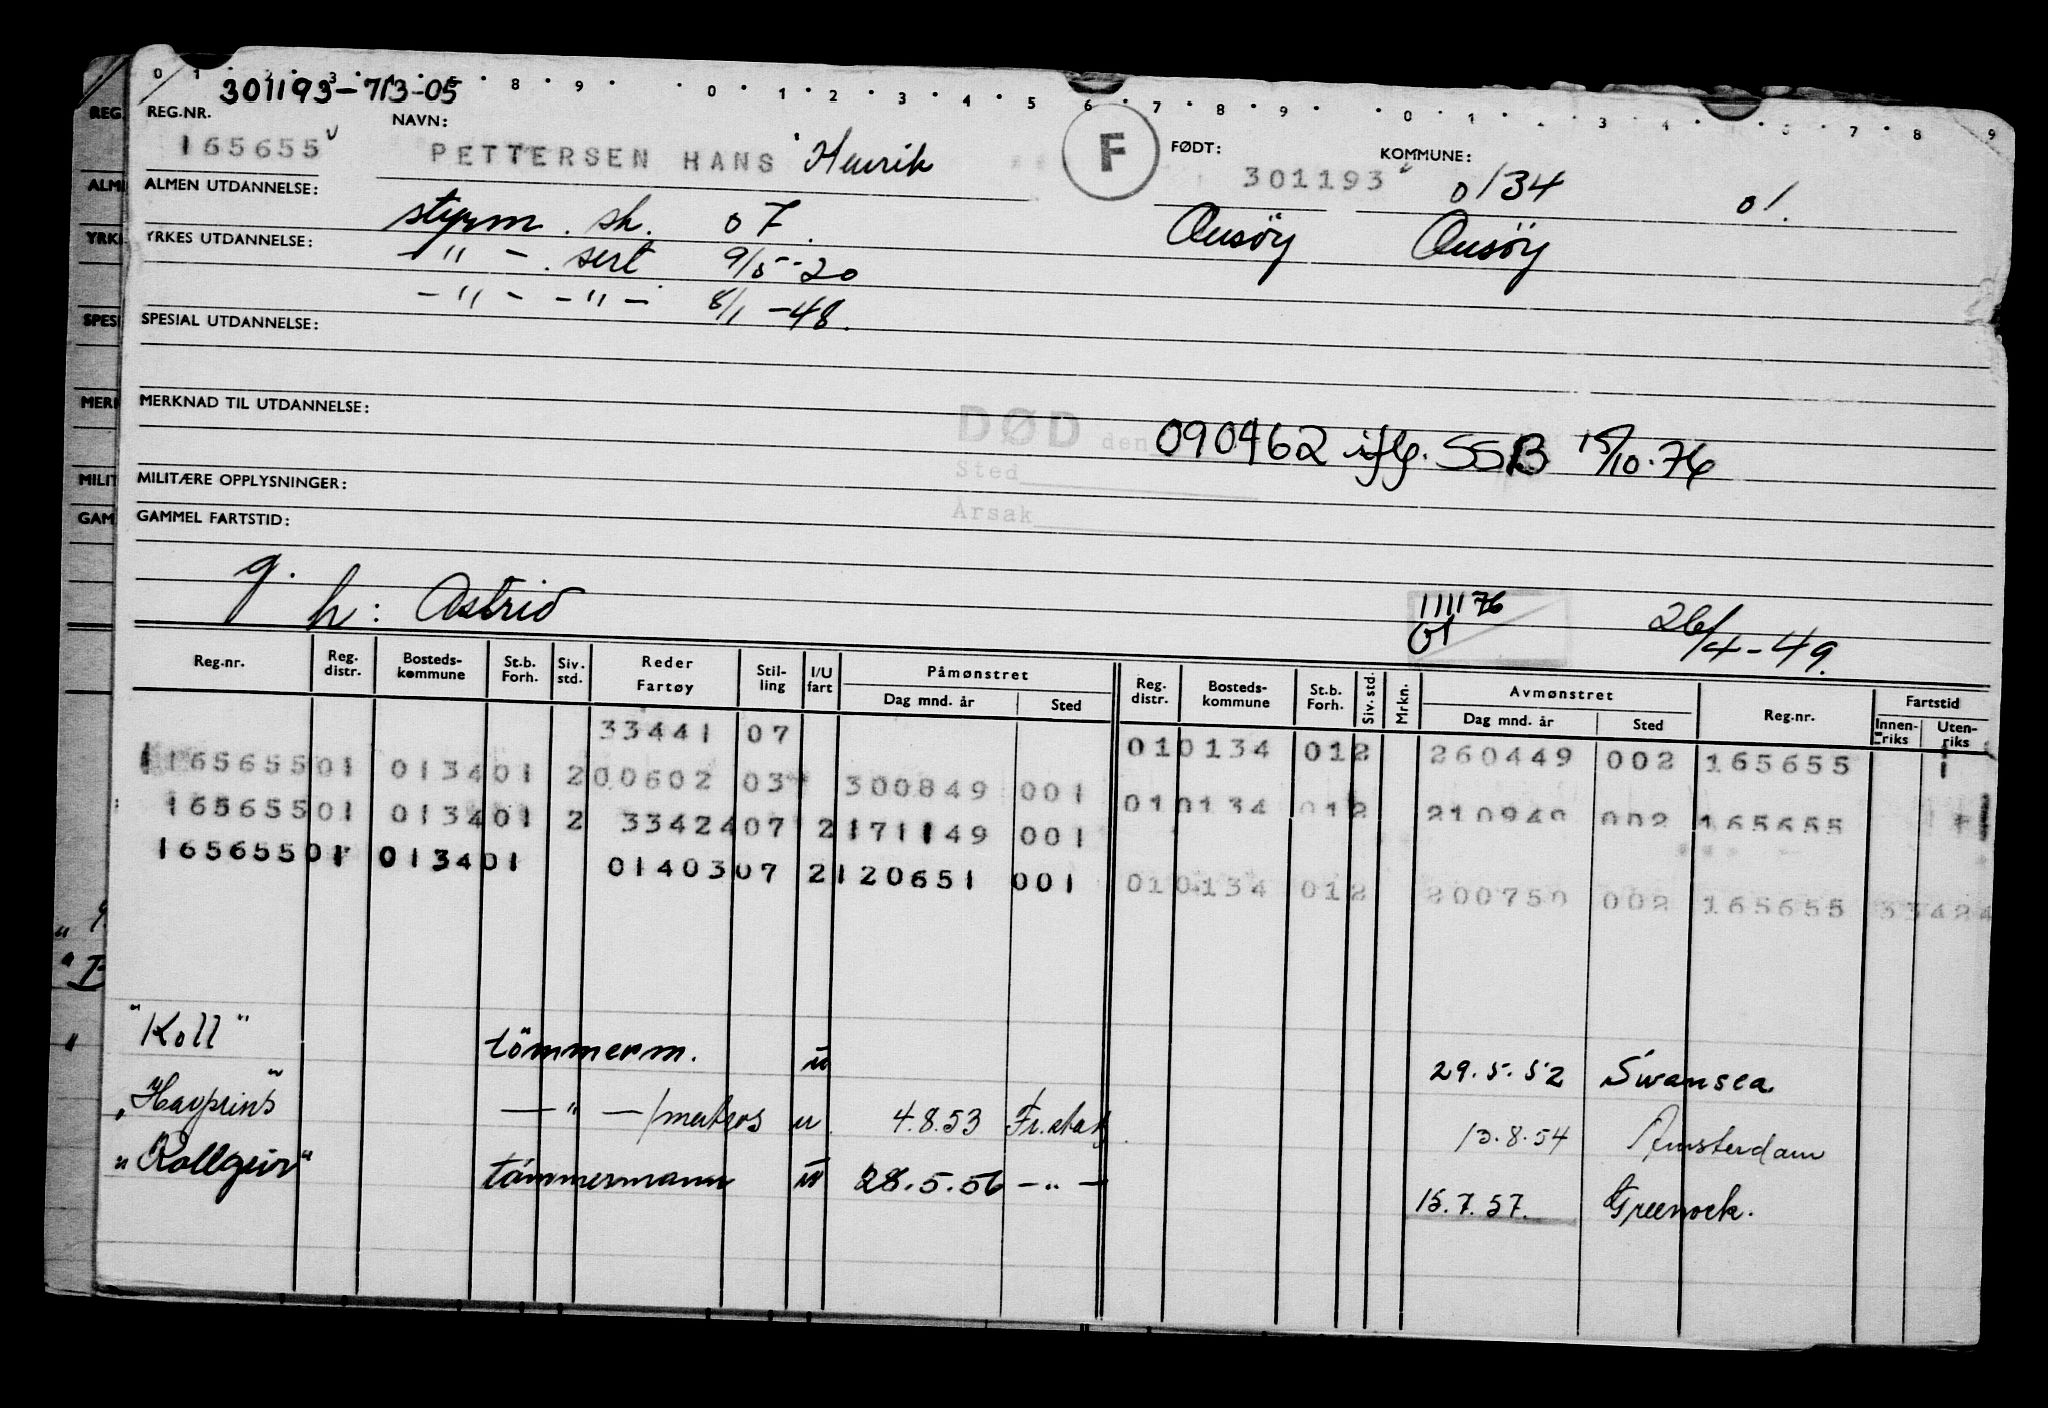 0 1 3 8 9 0 1 2 3 4 5 6 7 8 9 0 1 3 7 8 9
301193-713-05
REG.NR. NAVN: FØDT: KOMMUNE:
165655 PETTERSEN HANS Henrik F 301193 0134 01.
ALMEN UTDANNELSE: styrm. sk. 07. Onsöy Onsöy
YRKES UTDANNELSE: - " - . sert 9/5-20
- " - - " - 8/1-48.
SPESIAL UTDANNELSE:
MERKNAD TIL UTDANNELSE:
DØD den 090462 iflg. SSB 15/10.76
Sted
MILITÆRE OPPLYSNINGER:
Årsak
GAMMEL FARTSTID:
g.
h: Astrid 111176 26/4-49.
Reg.nr. Reg. distr. Bosteds- kommune St.b. Forh. Siv. std. Reder Fartøy Stil- ling I/U fart Påmønstret Reg. distr. Bosteds- kommune St.b. Forh. Siv. std. Mrkn. Avmønstret Reg.nr. Fartstid
Dag mnd. år Sted Dag mnd. år Sted Innen- riks Uten- riks
33441 07 01 0134 01 2 260449 002 165655
165655 01 0134 01 2 00602 03 300849 001 01 0134 01 2 210949 002 165655
165655 01 0134 01 2 33424 07 2 171149 001
165655 01 0134 01 01403 07 2 120651 001 01 0134 01 2 200750 002 165655 33424
"Koll" tömmerm. u 29.5.52 Swansea
"Havprins" - " - /matros u 4.8.53 Fr.stad 13.8.54 Amsterdam
"Kollgeir" tömmermann u 28.5.56 - " - 15.7.57. Greenock.